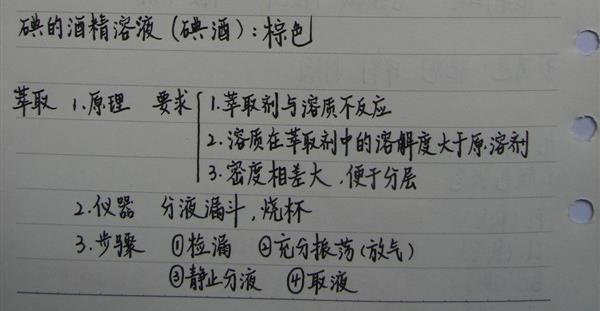 碘的酒精溶液(碘酒):棕色
萃取 1.原理 要求{1.萃取剂与溶质不反应
2.溶质在萃取剂中的溶解度大于原溶剂
3.密度相差大,便于分层
2.仪器 分液漏斗,烧杯
3.步骤 ①检漏 ②充分振荡(放气)
③静止分液 ④取液